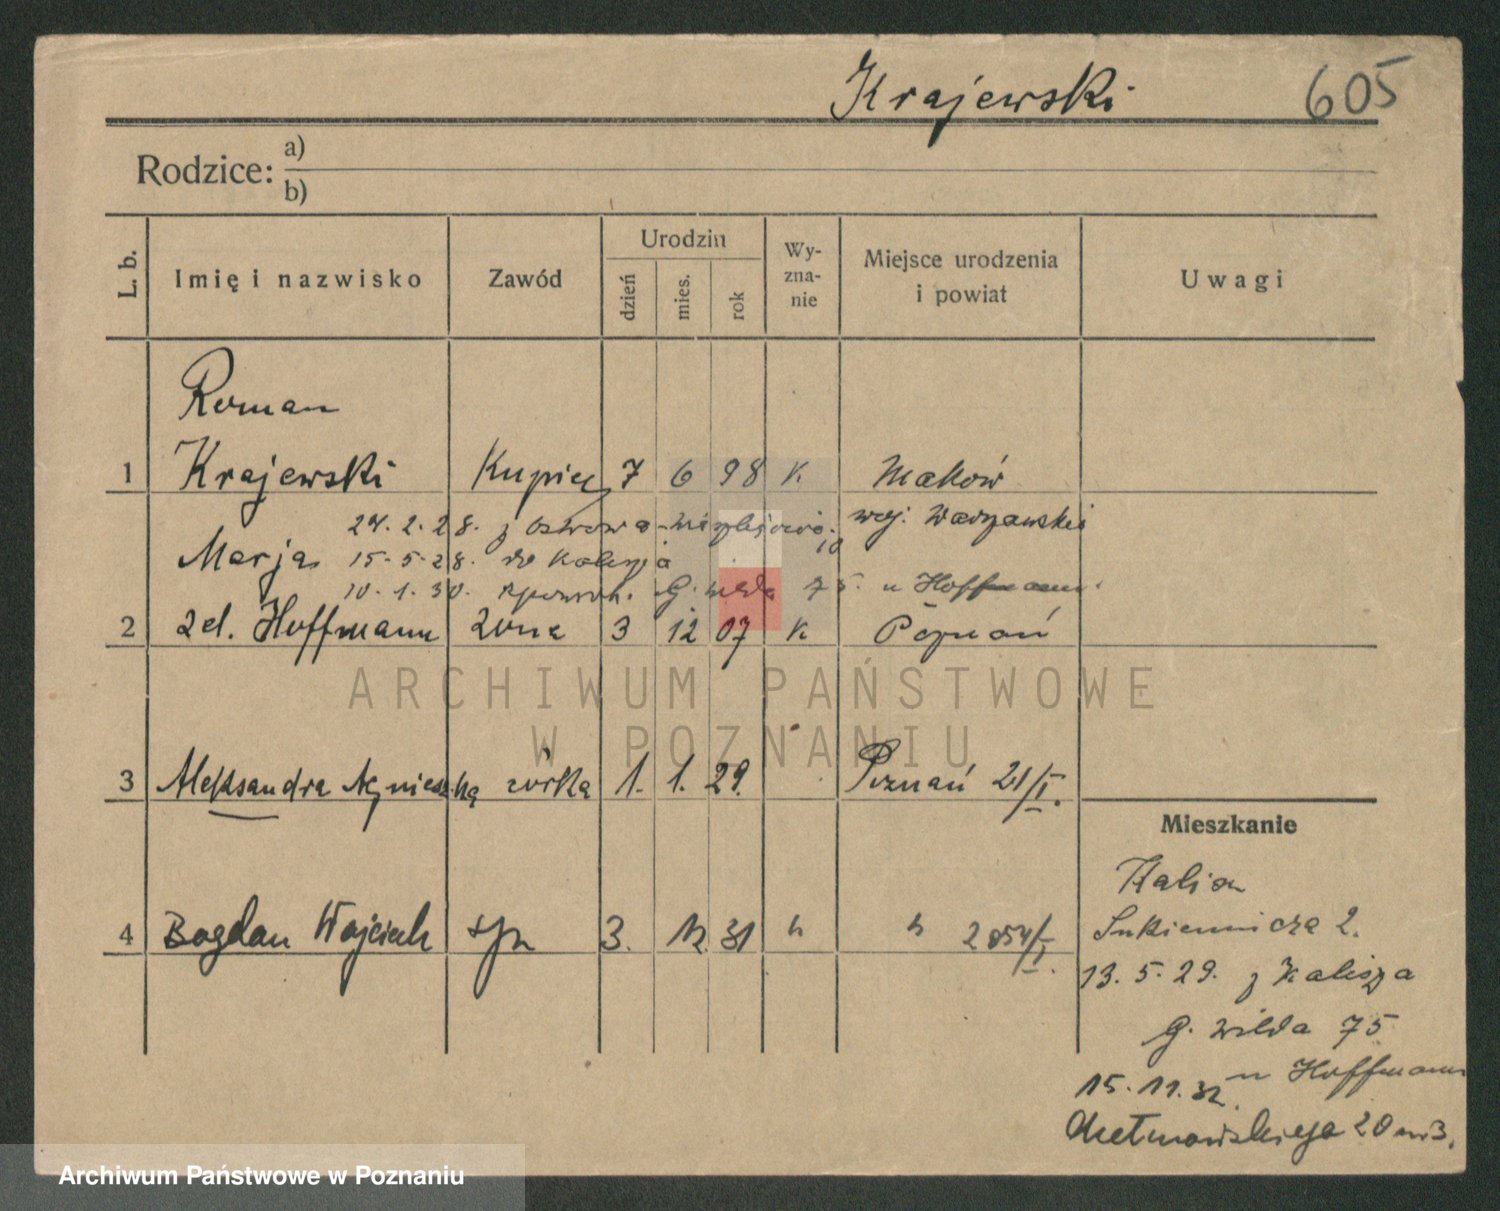 Krajewski 605
Rodzice: a)
b)
L. b. Imię i nazwisko Zawód Urodzin dzień mies. rok Wy-zna-nie Miejsce urodzenia i powiat Uwagi
Roman
1 Krajewski Kupiec 7 6 98 K Maków
24.2.28. z Ostrowa- woj. Warszawskie
Marja 15-5-28. do Kalisza
10.1.30. G. Wilda 75. u Hoffmann
2 zd. Hoffmann żona 3 12 07 K Poznań
ARCHIWUM PAŃSTWOWE
W POZNANIU
3 Aleksandra Agnieszka córka 1. 1. 29. Poznań 21/I.
Mieszkanie
Kalisz
4 Bogdan Wojciech syn 3. 12. 31 " "
Sukiennicza 2.
13.5.29. z Kalisza
G. Wilda 75
u Hoffmann
15.11.32.
Chełmońskiego 20 m 3.
Archiwum Państwowe w Poznaniu